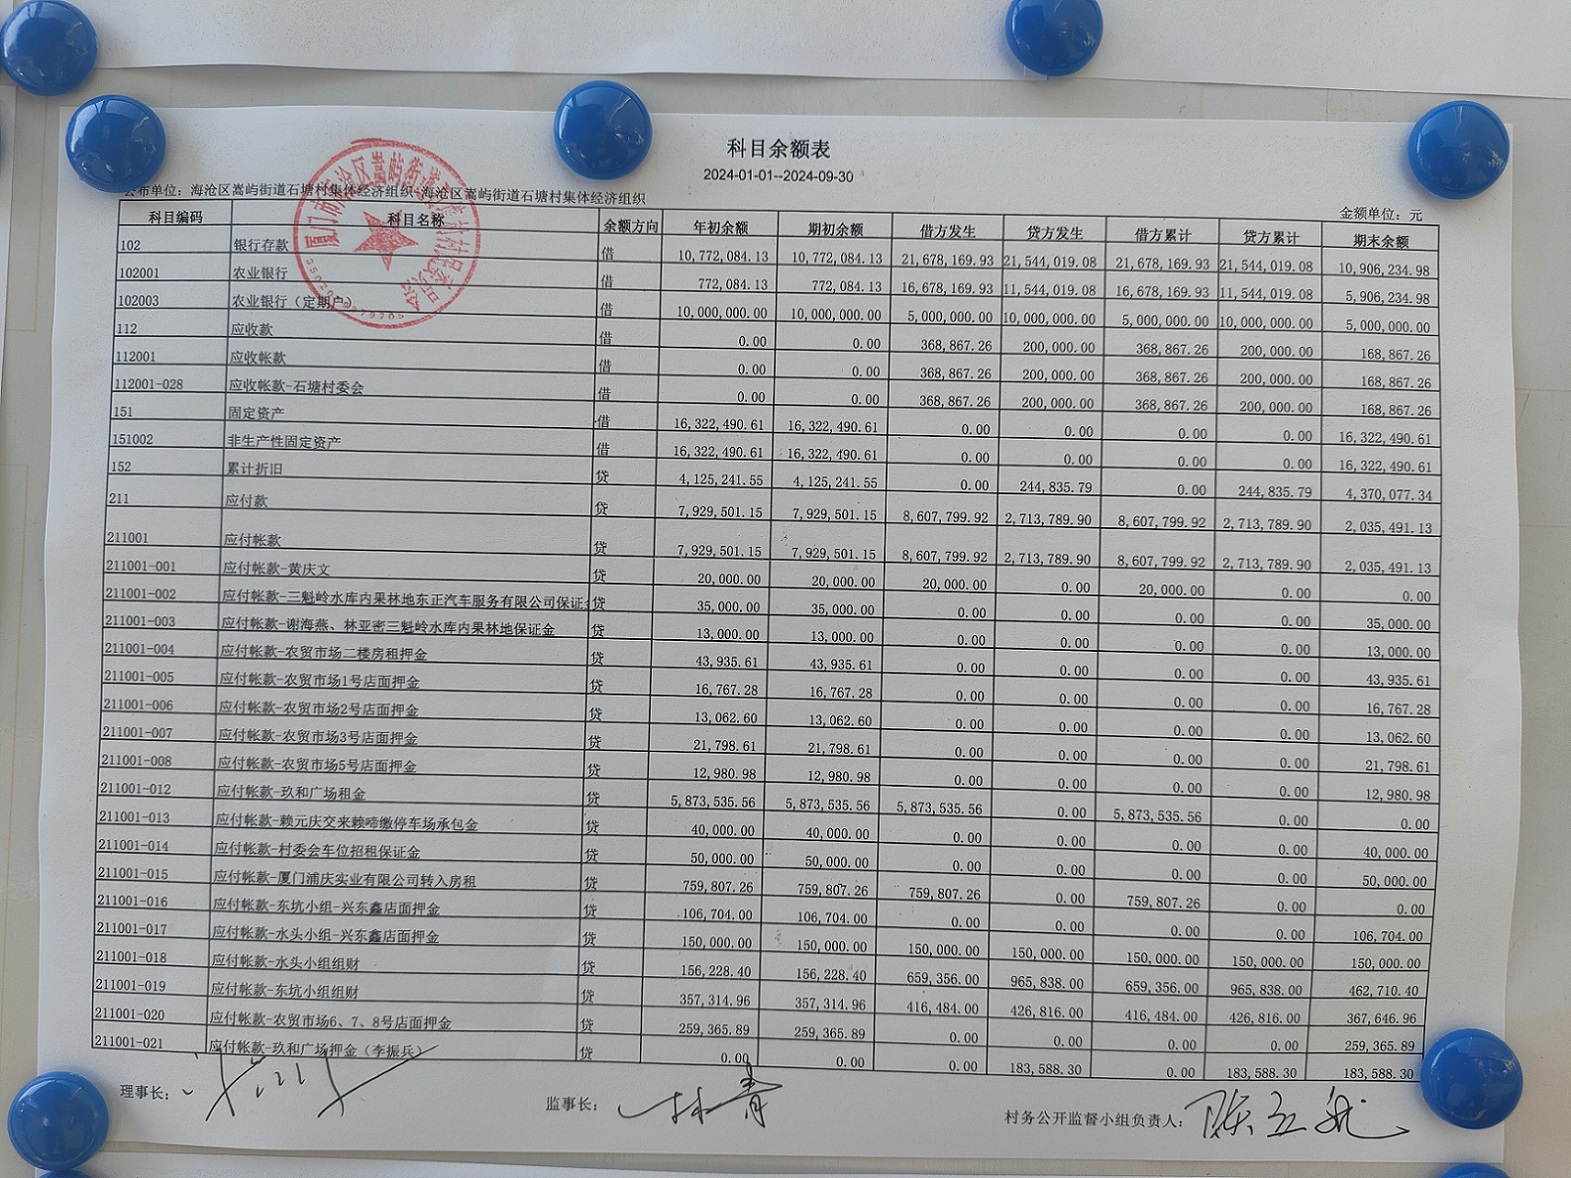 科目余额表
2024-01-01--2024-09-30
公布单位：海沧区嵩屿街道石塘村集体经济组织-海沧区嵩屿街道石塘村集体经济组织
金额单位：元
科目编码 科目名称 余额方向 年初余额 期初余额 借方发生 贷方发生 借方累计 贷方累计 期末余额
102 银行存款 借 10,772,084.13 10,772,084.13 21,678,169.93 21,544,019.08 21,678,169.93 21,544,019.08 10,906,234.98
102001 农业银行 借 772,084.13 772,084.13 16,678,169.93 11,544,019.08 16,678,169.93 11,544,019.08 5,906,234.98
102003 农业银行（定期户） 借 10,000,000.00 10,000,000.00 5,000,000.00 10,000,000.00 5,000,000.00 10,000,000.00 5,000,000.00
112 应收款 借 0.00 0.00 368,867.26 200,000.00 368,867.26 200,000.00 168,867.26
112001 应收帐款 借 0.00 0.00 368,867.26 200,000.00 368,867.26 200,000.00 168,867.26
112001-028 应收帐款-石塘村委会 借 0.00 0.00 368,867.26 200,000.00 368,867.26 200,000.00 168,867.26
151 固定资产 借 16,322,490.61 16,322,490.61 0.00 0.00 0.00 0.00 16,322,490.61
151002 非生产性固定资产 借 16,322,490.61 16,322,490.61 0.00 0.00 0.00 0.00 16,322,490.61
152 累计折旧 贷 4,125,241.55 4,125,241.55 0.00 244,835.79 0.00 244,835.79 4,370,077.34
211 应付款 贷 7,929,501.15 7,929,501.15 8,607,799.92 2,713,789.90 8,607,799.92 2,713,789.90 2,035,491.13
211001 应付帐款 贷 7,929,501.15 7,929,501.15 8,607,799.92 2,713,789.90 8,607,799.92 2,713,789.90 2,035,491.13
211001-001 应付帐款-黄庆文 贷 20,000.00 20,000.00 20,000.00 0.00 20,000.00 0.00 0.00
211001-002 应付帐款-三魁岭水库内果林地东正汽车服务有限公司保证 贷 35,000.00 35,000.00 0.00 0.00 0.00 0.00 35,000.00
211001-003 应付帐款-谢海燕、林亚密三魁岭水库内果林地保证金 贷 13,000.00 13,000.00 0.00 0.00 0.00 0.00 13,000.00
211001-004 应付帐款-农贸市场二楼房租押金 贷 43,935.61 43,935.61 0.00 0.00 0.00 0.00 43,935.61
211001-005 应付帐款-农贸市场1号店面押金 贷 16,767.28 16,767.28 0.00 0.00 0.00 0.00 16,767.28
211001-006 应付帐款-农贸市场2号店面押金 贷 13,062.60 13,062.60 0.00 0.00 0.00 0.00 13,062.60
211001-007 应付帐款-农贸市场3号店面押金 贷 21,798.61 21,798.61 0.00 0.00 0.00 0.00 21,798.61
211001-008 应付帐款-农贸市场5号店面押金 贷 12,980.98 12,980.98 0.00 0.00 0.00 0.00 12,980.98
211001-012 应付帐款-玖和广场租金 贷 5,873,535.56 5,873,535.56 5,873,535.56 0.00 5,873,535.56 0.00 0.00
211001-013 应付帐款-赖元庆交来赖啼缴停车场承包金 贷 40,000.00 40,000.00 0.00 0.00 0.00 0.00 40,000.00
211001-014 应付帐款-村委会车位招租保证金 贷 50,000.00 50,000.00 0.00 0.00 0.00 0.00 50,000.00
211001-015 应付帐款-厦门浦庆实业有限公司转入房租 贷 759,807.26 759,807.26 759,807.26 0.00 759,807.26 0.00 0.00
211001-016 应付帐款-东坑小组-兴东鑫店面押金 贷 106,704.00 106,704.00 0.00 0.00 0.00 0.00 106,704.00
211001-017 应付帐款-水头小组-兴东鑫店面押金 贷 150,000.00 150,000.00 150,000.00 150,000.00 150,000.00 150,000.00 150,000.00
211001-018 应付帐款-水头小组组财 贷 156,228.40 156,228.40 659,356.00 965,838.00 659,356.00 965,838.00 462,710.40
211001-019 应付帐款-东坑小组组财 贷 357,314.96 357,314.96 416,484.00 426,816.00 416,484.00 426,816.00 367,646.96
211001-020 应付帐款-农贸市场6、7、8号店面押金 贷 259,365.89 259,365.89 0.00 0.00 0.00 0.00 259,365.89
211001-021 应付帐款-玖和广场押金（李振兵） 贷 0.00 0.00 0.00 183,588.30 0.00 183,588.30 183,588.30
理事长：
监事长： 林青
村务公开监督小组负责人：